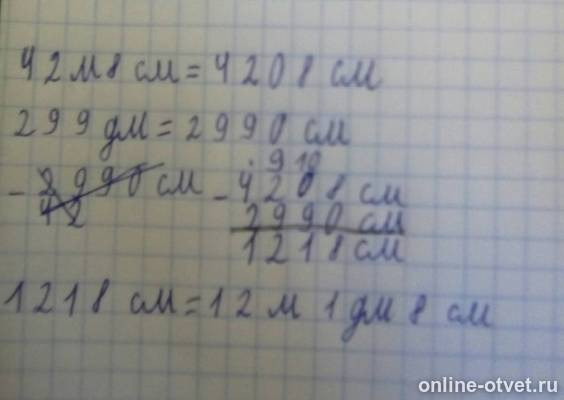 42 м 8 см = 4208 см
299 дм = 2990 см
9 10
- 2990 см - 4208 см
42 2990 см
1218 см
1218 см = 12 м 1 дм 8 см
online-otvet.ru